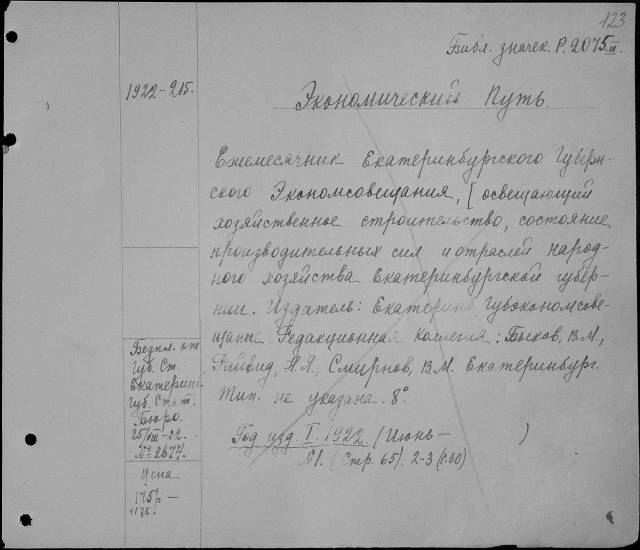 123
Библ. значек. Р. 2075.III.
1922-215.
Экономический Путь.
Ежемесячник Екатеринбургского Губерн-
ского Экономсовещания, [освещающий
хозяйственное строительство, состояние
производительных сил и отраслей народ-
ного хозяйства Екатеринбургской губер-
нии. Издатель: Екатерин. Губэкономсове-
щание. Редакционная Коллегия: Быков, В.М.,
А.Я., Смирнов, В.М. Екатеринбург.
Тип. не указана. 8°.
Год изд I. 1922 (Июнь- )
№1. (Стр. 65). 2-3 (с.60)
Безпл. от
Губ. Ст.
Екатеринб.
Губ. Стат.
Бюро.
25/VIII-22.
№ 2674.
Цена
175р-
+175.